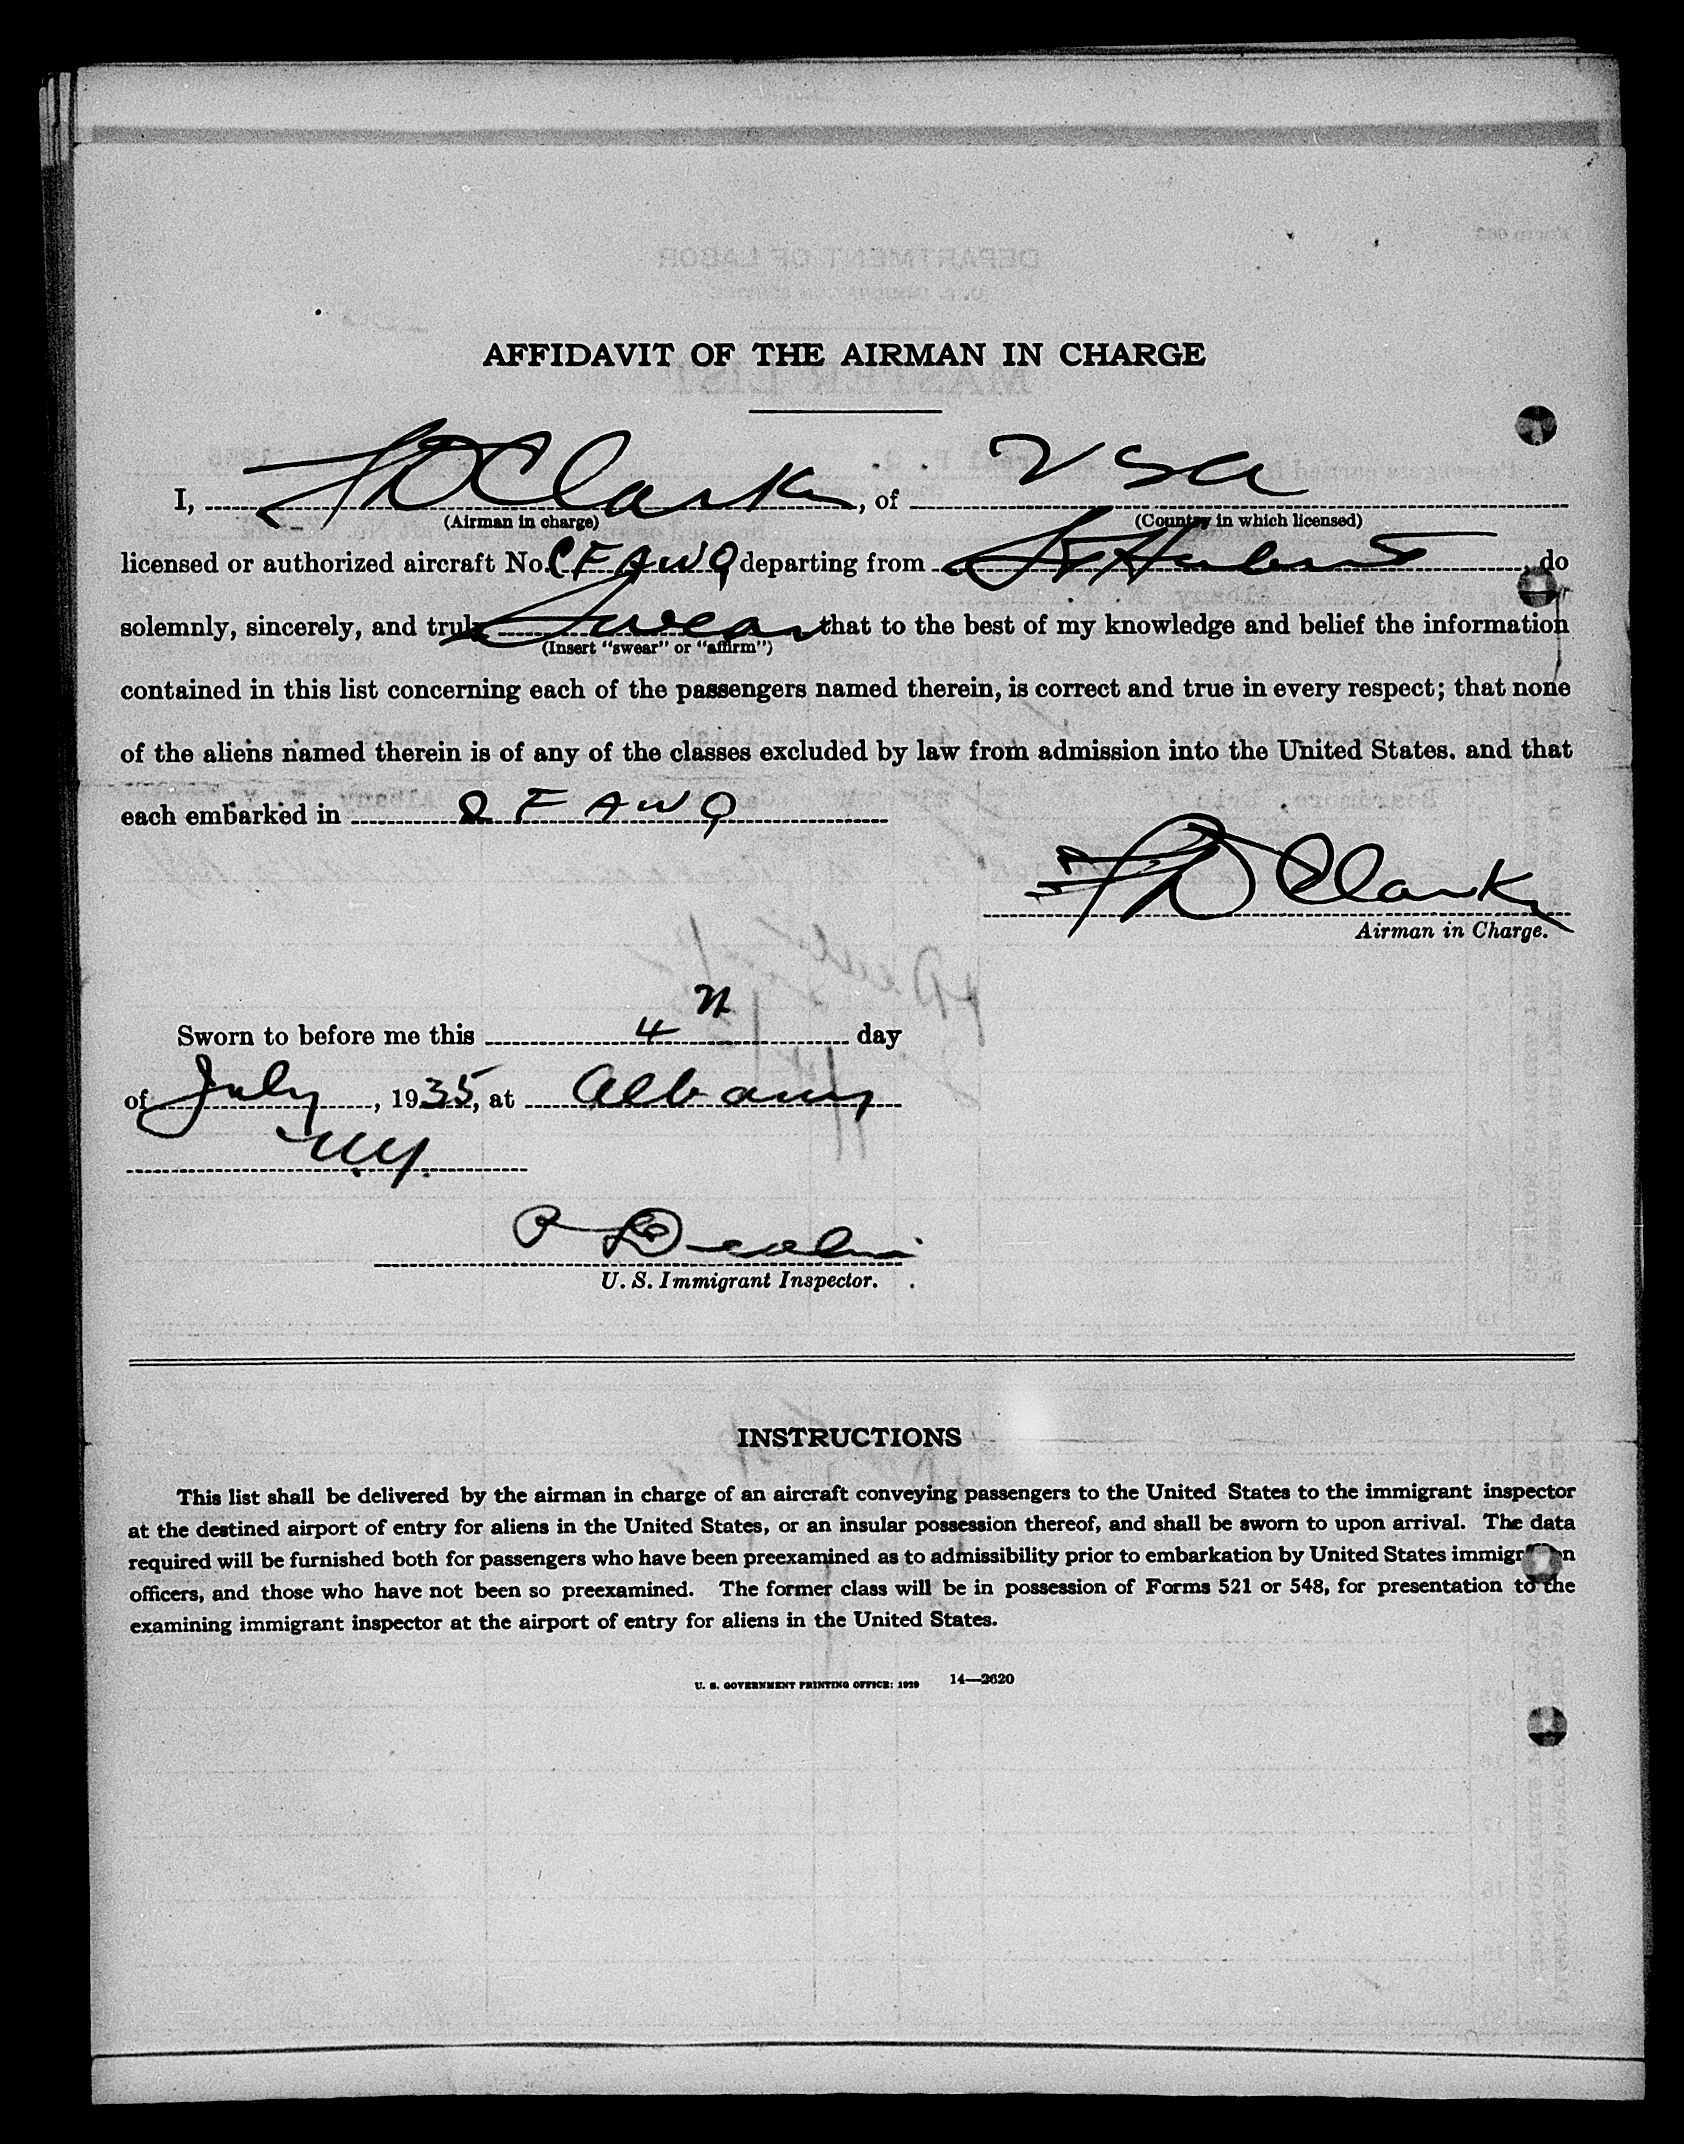 AFFIDAVIT OF THE AIRMAN IN CHARGE
I, F D Clark, of USA
(Airman in charge) (Country in which licensed)
licensed or authorized aircraft No. CF AWQ departing from St Hubert, do
solemnly, sincerely, and truly Swear that to the best of my knowledge and belief the information
(Insert "swear" or "affirm")
contained in this list concerning each of the passengers named therein, is correct and true in every respect; that none
of the aliens named therein is of any of the classes excluded by law from admission into the United States. and that
each embarked in CF AWQ
F D Clark
Airman in Charge.
Sworn to before me this 4th day
of July, 1935, at Albany
N.Y.
U. S. Immigrant Inspector.
INSTRUCTIONS
This list shall be delivered by the airman in charge of an aircraft conveying passengers to the United States to the immigrant inspector
at the destined airport of entry for aliens in the United States, or an insular possession thereof, and shall be sworn to upon arrival. The data
required will be furnished both for passengers who have been preexamined as to admissibility prior to embarkation by United States immigration
officers, and those who have not been so preexamined. The former class will be in possession of Forms 521 or 548, for presentation to the
examining immigrant inspector at the airport of entry for aliens in the United States.
U. S. GOVERNMENT PRINTING OFFICE: 1929 14—2620